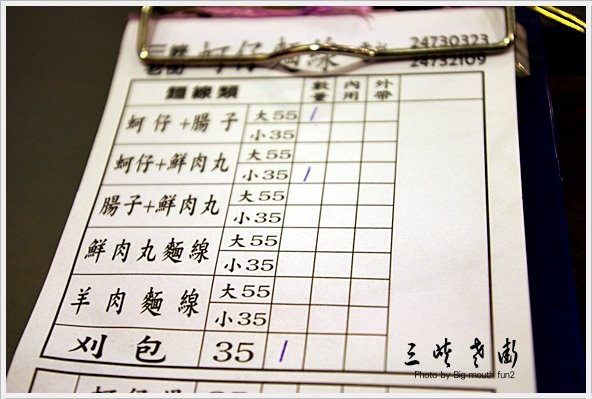 三峽 蚵仔麵線 24730323
老街 24732109
麵線類 數量 內用 外帶
蚵仔+腸子 大55 /
小35
蚵仔+鮮肉丸 大55
小35 /
腸子+鮮肉丸 大55
小35
鮮肉丸麵線 大55
小35
羊肉麵線 大55
小35
刈包 35 /
三峽老街
Photo by Big mouth fun2